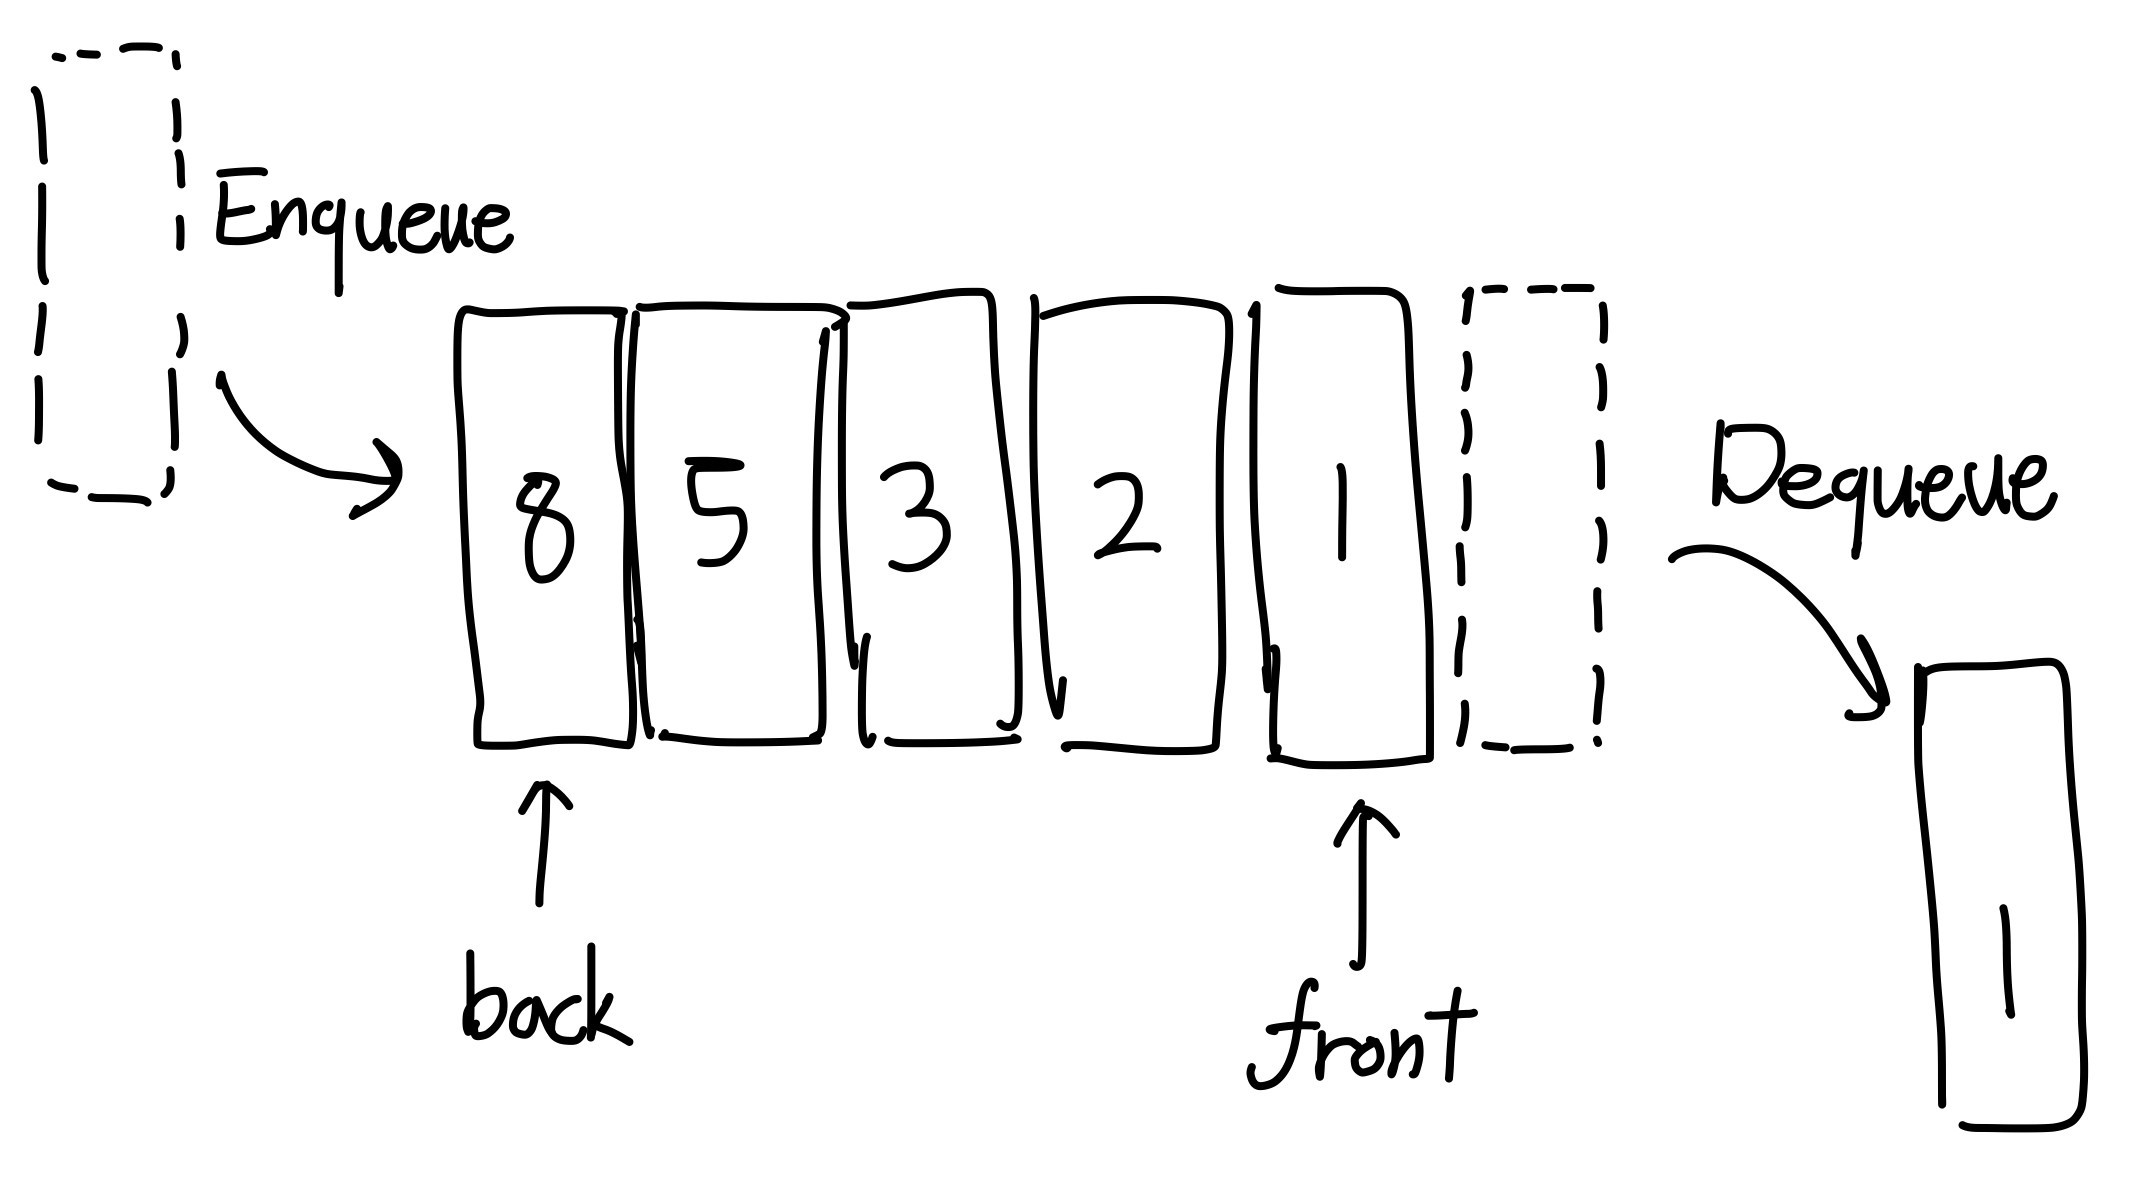 Enqueue
8 5 3 2 1
Dequeue
1
back
front